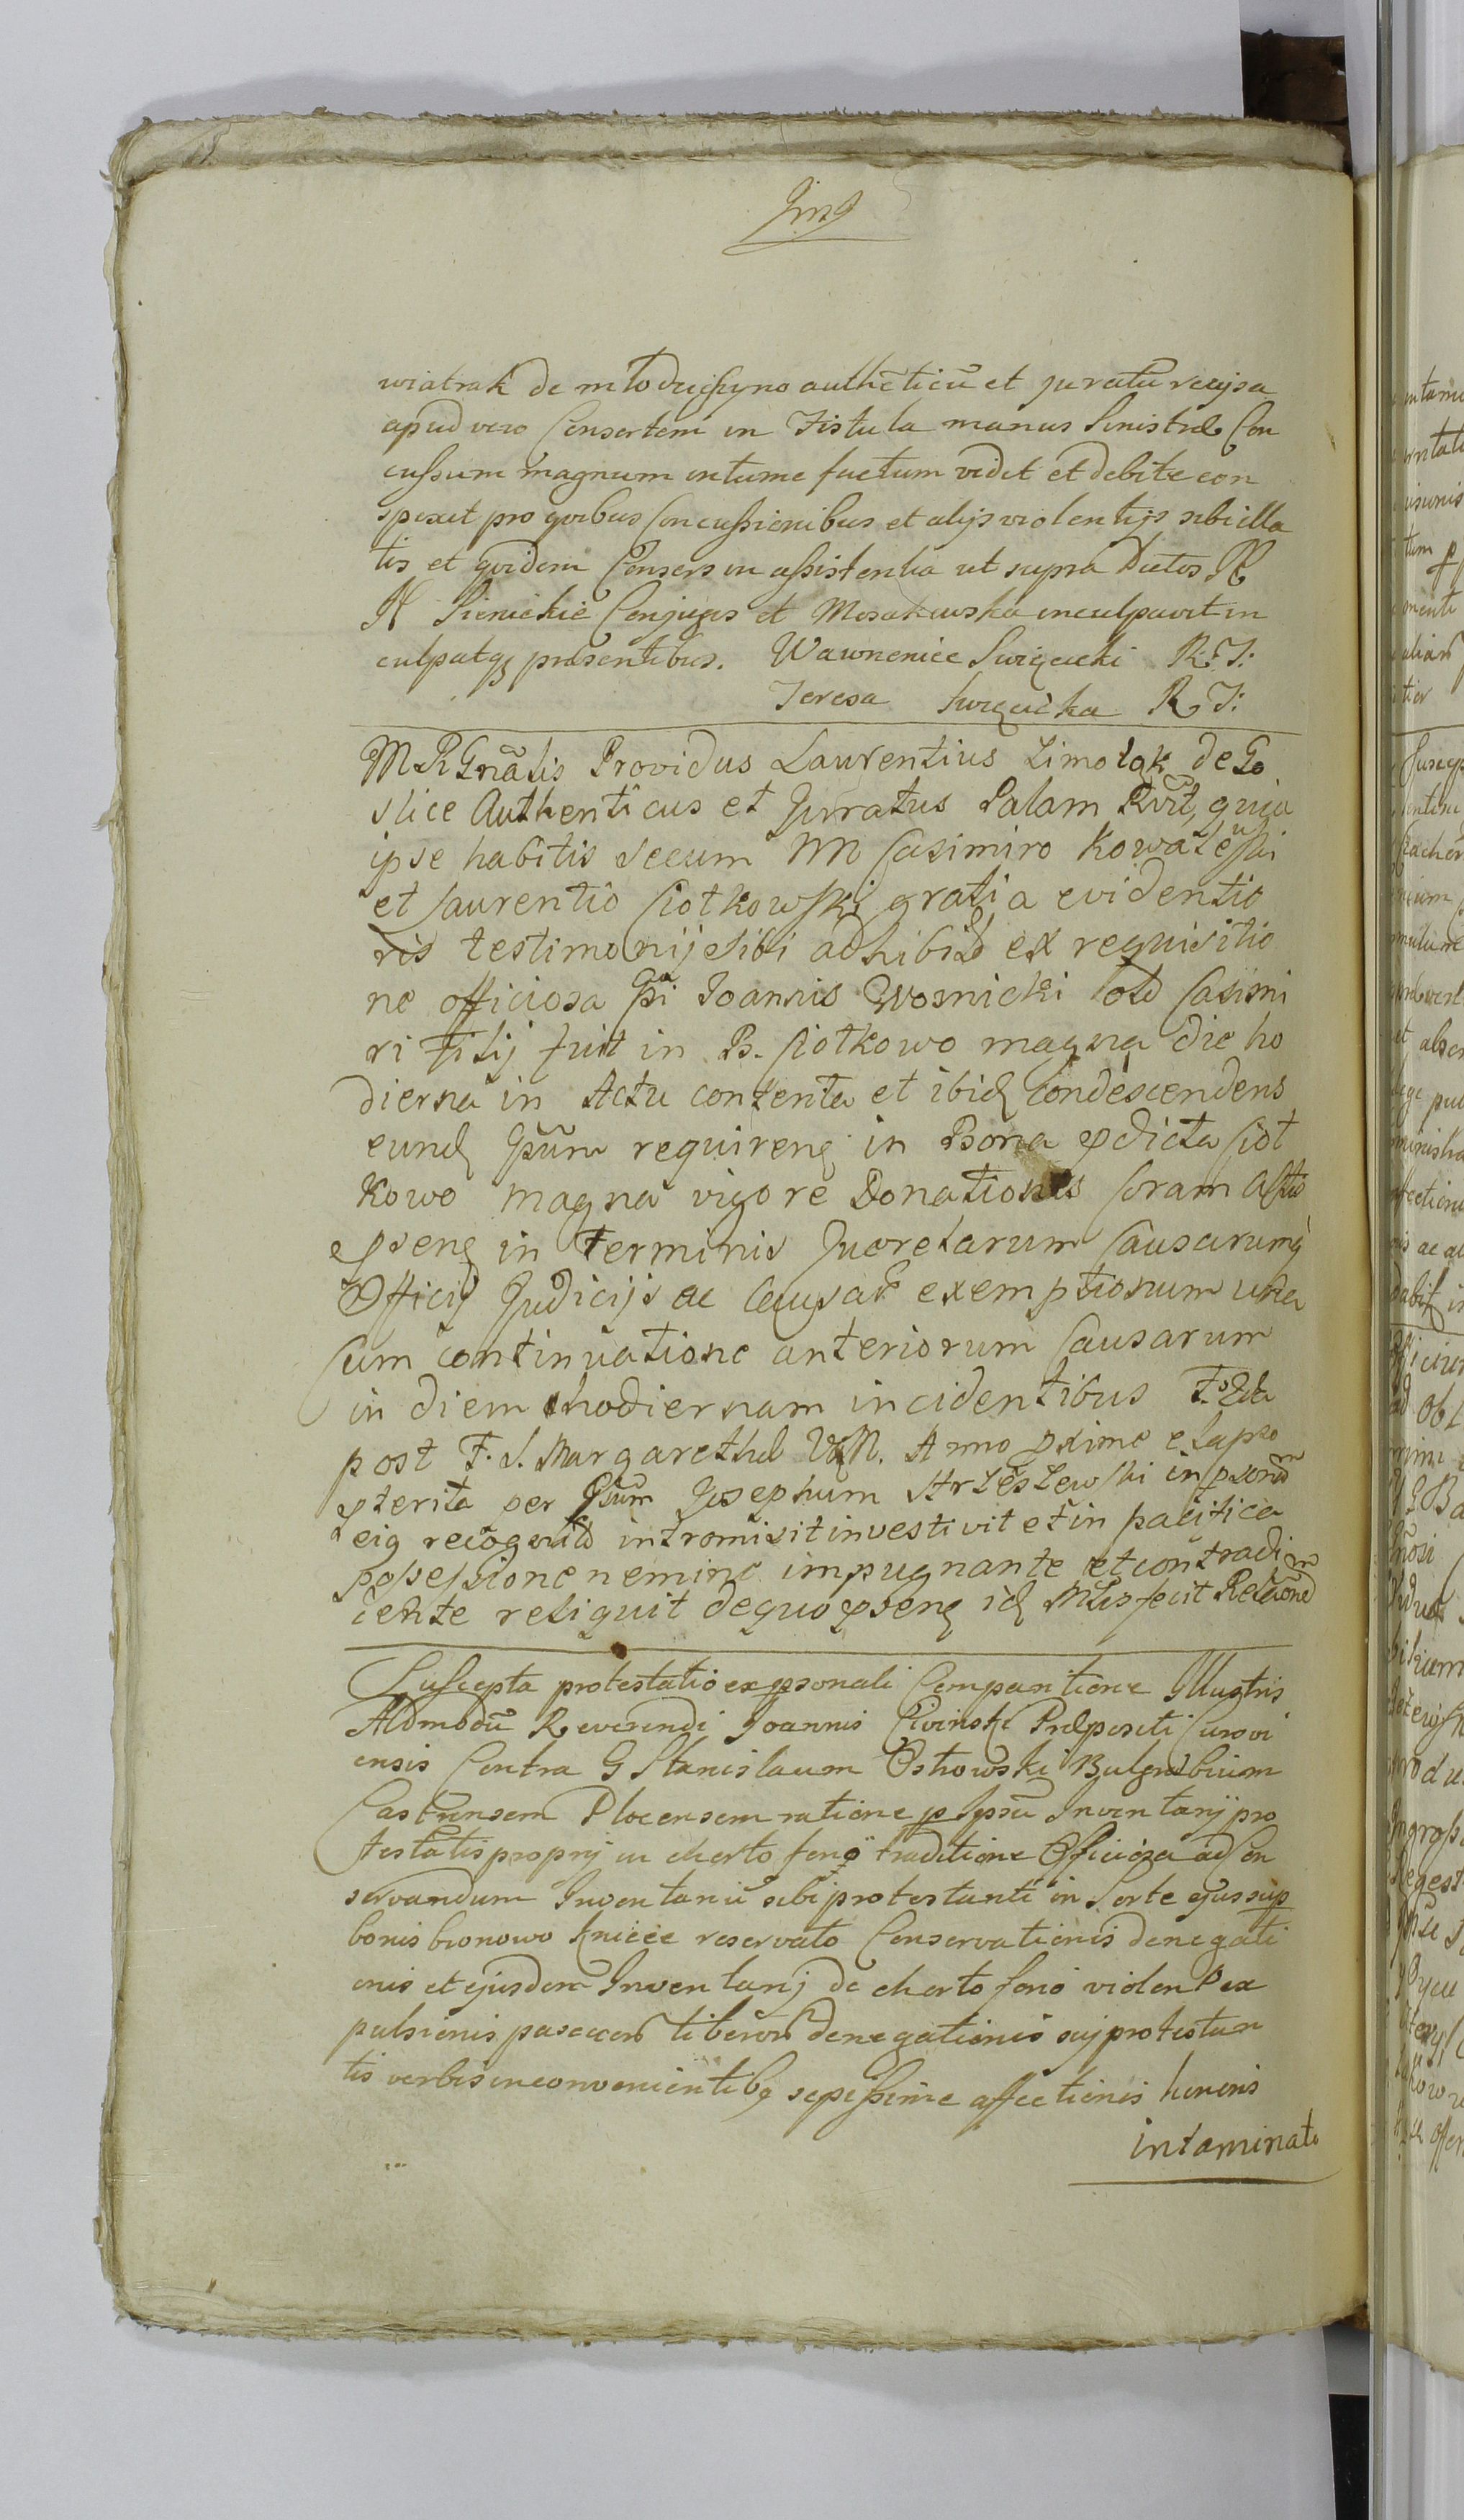 wiatrak de młodzieszyno authēticū et juratū recisa
apud vero Consortem in Fistula manus Sinistræ Con
cussum magnum intume factum vidit et debite con
spexit pro quibus Concussionibus et alijs violentijs sibi illa
tis et quidem Consors in assistentia ut supra Dictos N
N Sienickie Conjuges et Mosakowska inculpavit in
culpatq præsentibus. Wawrzeniec Swięcicki R: S:
Teresa Swięcicka R S:
M R Gnālis Providus Laurentius Zimoląk de Go
slice Authenticus et Jurratus Palam Rvīt, quia
ipse habitis secum NN Casimiro Kowalewski
et Laurentio Ciołkowski gratia evidentio
ris testimonij sibi adhibitd ex requisitio
ne officiosa Gsi Joannis Wosnicki old Casimi
ri Filij fuit in B. Ciołkowo magna die ho
dierna in Actu contenta et ibid Condescendens
eund Gsum requirenq in Bona pdicta Ciot
kowo magna vigore Donationis Coram Actis
psenq in Terminis Queretarum Causarumq
Officij Judicijs ac Causar exemptionum una
Cum continuatione anteriorum Causarum
in diem hodiernam incidentibus F. 2da
post F. S. Margarethæ V&M. Anno pxime elapso
pterita per Gsum Josephum Strzeszewski in psonā
eiq recognitd intromisit investivit et in pacifica
possessione nemine impugnante et contradi
cente reliquit de quo psenq id Mtlis fecit Relaonē
Suscepta protestatio ex psonali Comparitione Illustris
Admodū Reverendi Joannis Civinski Præpositi Curowi
ensis Contra G Stanislaum Ostrowski Burgrabium
Castrensem Plocensem ratione p Ipsū Inventarij pro
testātis proprij in cherto feno traditione Officiosa ad Con
servandum Inventariū sibi protestanti in Sorte ejus sup
bonis bronowo kniece reservato Conservationis denegati
onis et ejusdem Inventarij de cherto feno violen ex
pulsionis pascuorum liberorū denegationis suj protestan
tis verbis inconvenientibq sepissime affectionis honoris
intaminati